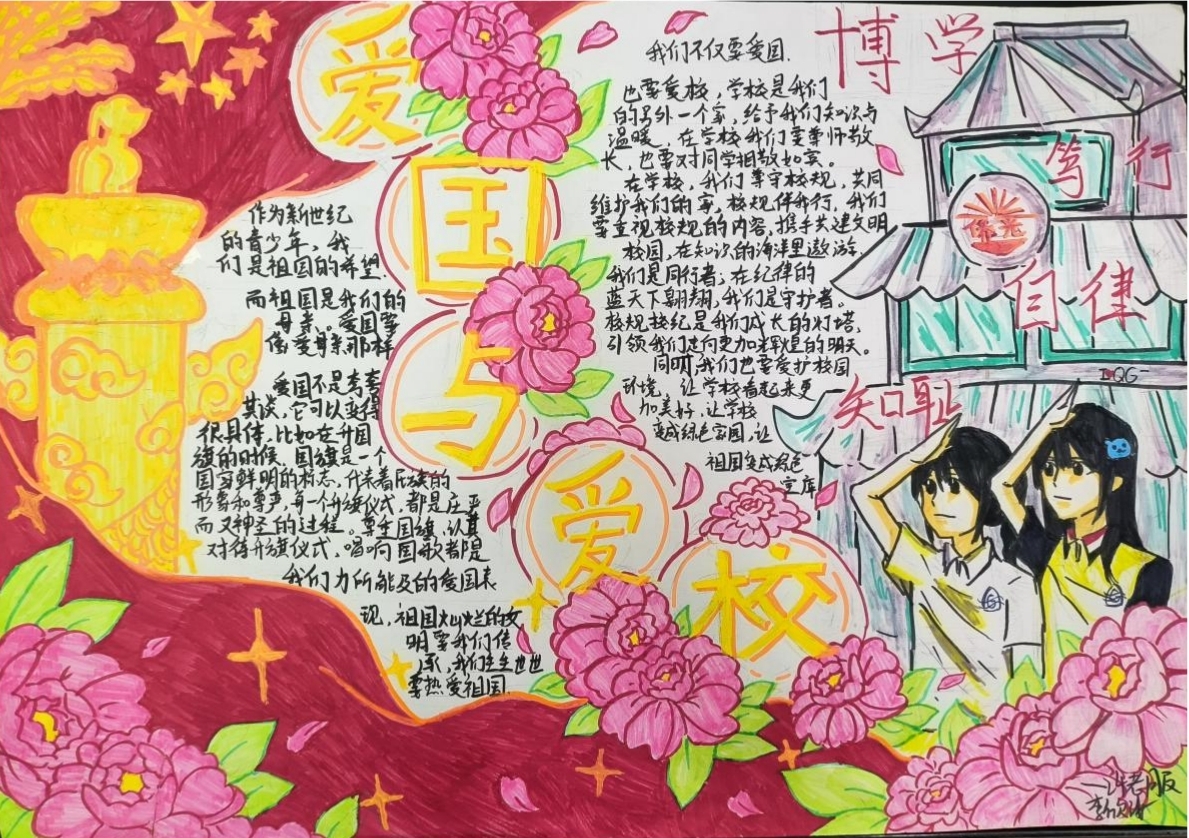 爱国与爱校
作为新世纪
的青少年，我
们是祖国的希望.
而祖国是我们的
母亲。爱国要
像爱母亲那样
爱国不是夸夸
其谈，它可以变得
很具体，比如在升国
旗的时候，国旗是一个
国家鲜明的标志，代表着民族的
形象和尊严，每一个升旗仪式，都是庄严
而又神圣的过程。尊重国旗，认真
对待升旗仪式，唱响国歌都是
我们力所能及的爱国表
现，祖国灿烂的文
明要我们传
承，我们生生世世
要热爱祖国
我们不仅要爱国.
也要爱校，学校是我们
的另外一个家，给予我们知识与
温暖，在学校我们要尊师敬
长，也要对同学相敬如宾。
在学校，我们遵守校规，共同
维护我们的家，校规伴我行，我们
要重视校规的内容，携手共建文明
校园，在知识的海洋里遨游.
我们是同行者；在纪律的
蓝天下翱翔，我们是守护者。
校规校纪是我们成长的灯塔，
引领我们走向更加辉煌的明天。
同时，我们也要爱护校园
环境，让学校看起来更
加美好，让学校
变成绿色家园，让
祖国变成绿色
宝库
博学
笃行
自律
知耻
DQG